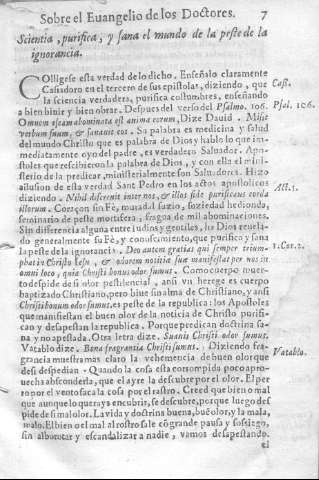 Sobre el Euangelio de los Doctores. 7
Scientia, purifica, y sana el mundo de la peste de la
ignorancia.
COlligese esta verdad de lo dicho. Enseñalo claramente
Casiodoro en el tercero de sus epistolas, diziendo, que Cass.
la sciencia verdadera, purifica costumbres, enseñando
a bien biuir y bien obrar. Despues del verso del Psalmo. 106. Psal. 106.
Omnem escam abominata est anima eorum, Dize Dauid. Misit
verbum suum, & sanauit eos. Su palabra es medicina y salud
del mundo Christo que es palabra de Dios y hablo lo que in-
mediatamente oyo del padre, es verdadero Saluador. Apo-
stoles que rescibieron la palabra de Dios, y con ella el mini-
sterio de la predicar, ministerialmente son Saluadores. Hizo
allusion de esta verdad Sant Pedro en los actos apostolicos Act. 1.
diziendo. Nihil discreuit inter nos, & illos fide purificans corda
illorum. Coraçon sin Fè, muradal suzio, sociedad hedionda,
seminatio de peste mortifera, fragua de mil abominaciones.
Sin differencia alguna entre iudios y gentiles, ha Dios reuela-
do generalmente su Fè, y conoscimiento, que purifica y sana
la peste de la ignorancia. Deo autem gratias qui semper trium- 1. Cor. 2.
phat in Christo Iesu, & odorem notitiæ suæ manifestat per nos in
omni loco, quia Christi bonus odor sumus. Como cuerpo muer-
to despide de si olor pestilencial, ansi vn herege es cuerpo
baptizado Christiano, pero biue sin alma de Christiano, y ansi
Christi bonum odor sumus, es peste de la republica: los Apostoles
que manifiestan el buen olor de la noticia de Christo purifi-
can y desapestan la republica. Porque predican doctrina sa-
na y no apestada. Otra letra dize. Suauis Christi odor sumus.
Vatablo dize. Bona fragrantia Christi sumus. Diziendo fra- Vatablo.
grancia muestra mas claro la vehemencia de buen olor que
desi despedian. Quando la cosa esta corrompida poco apro-
uecha absconderla, que el ayre la descubre por el olor. El per
ro por el vento saca la cosa por el rastro. Creed que bien o mal
que aunque lo queráys encubrir, se descubre, porque luego des
pide de si mal olor. La vida y doctrina buena, buē olor, y la mala,
malo. El bien o el mal al rostro sale cō grande pausa y sossiego,
sin alborotar y escandalizar a nadie, vamos desapestando.
el